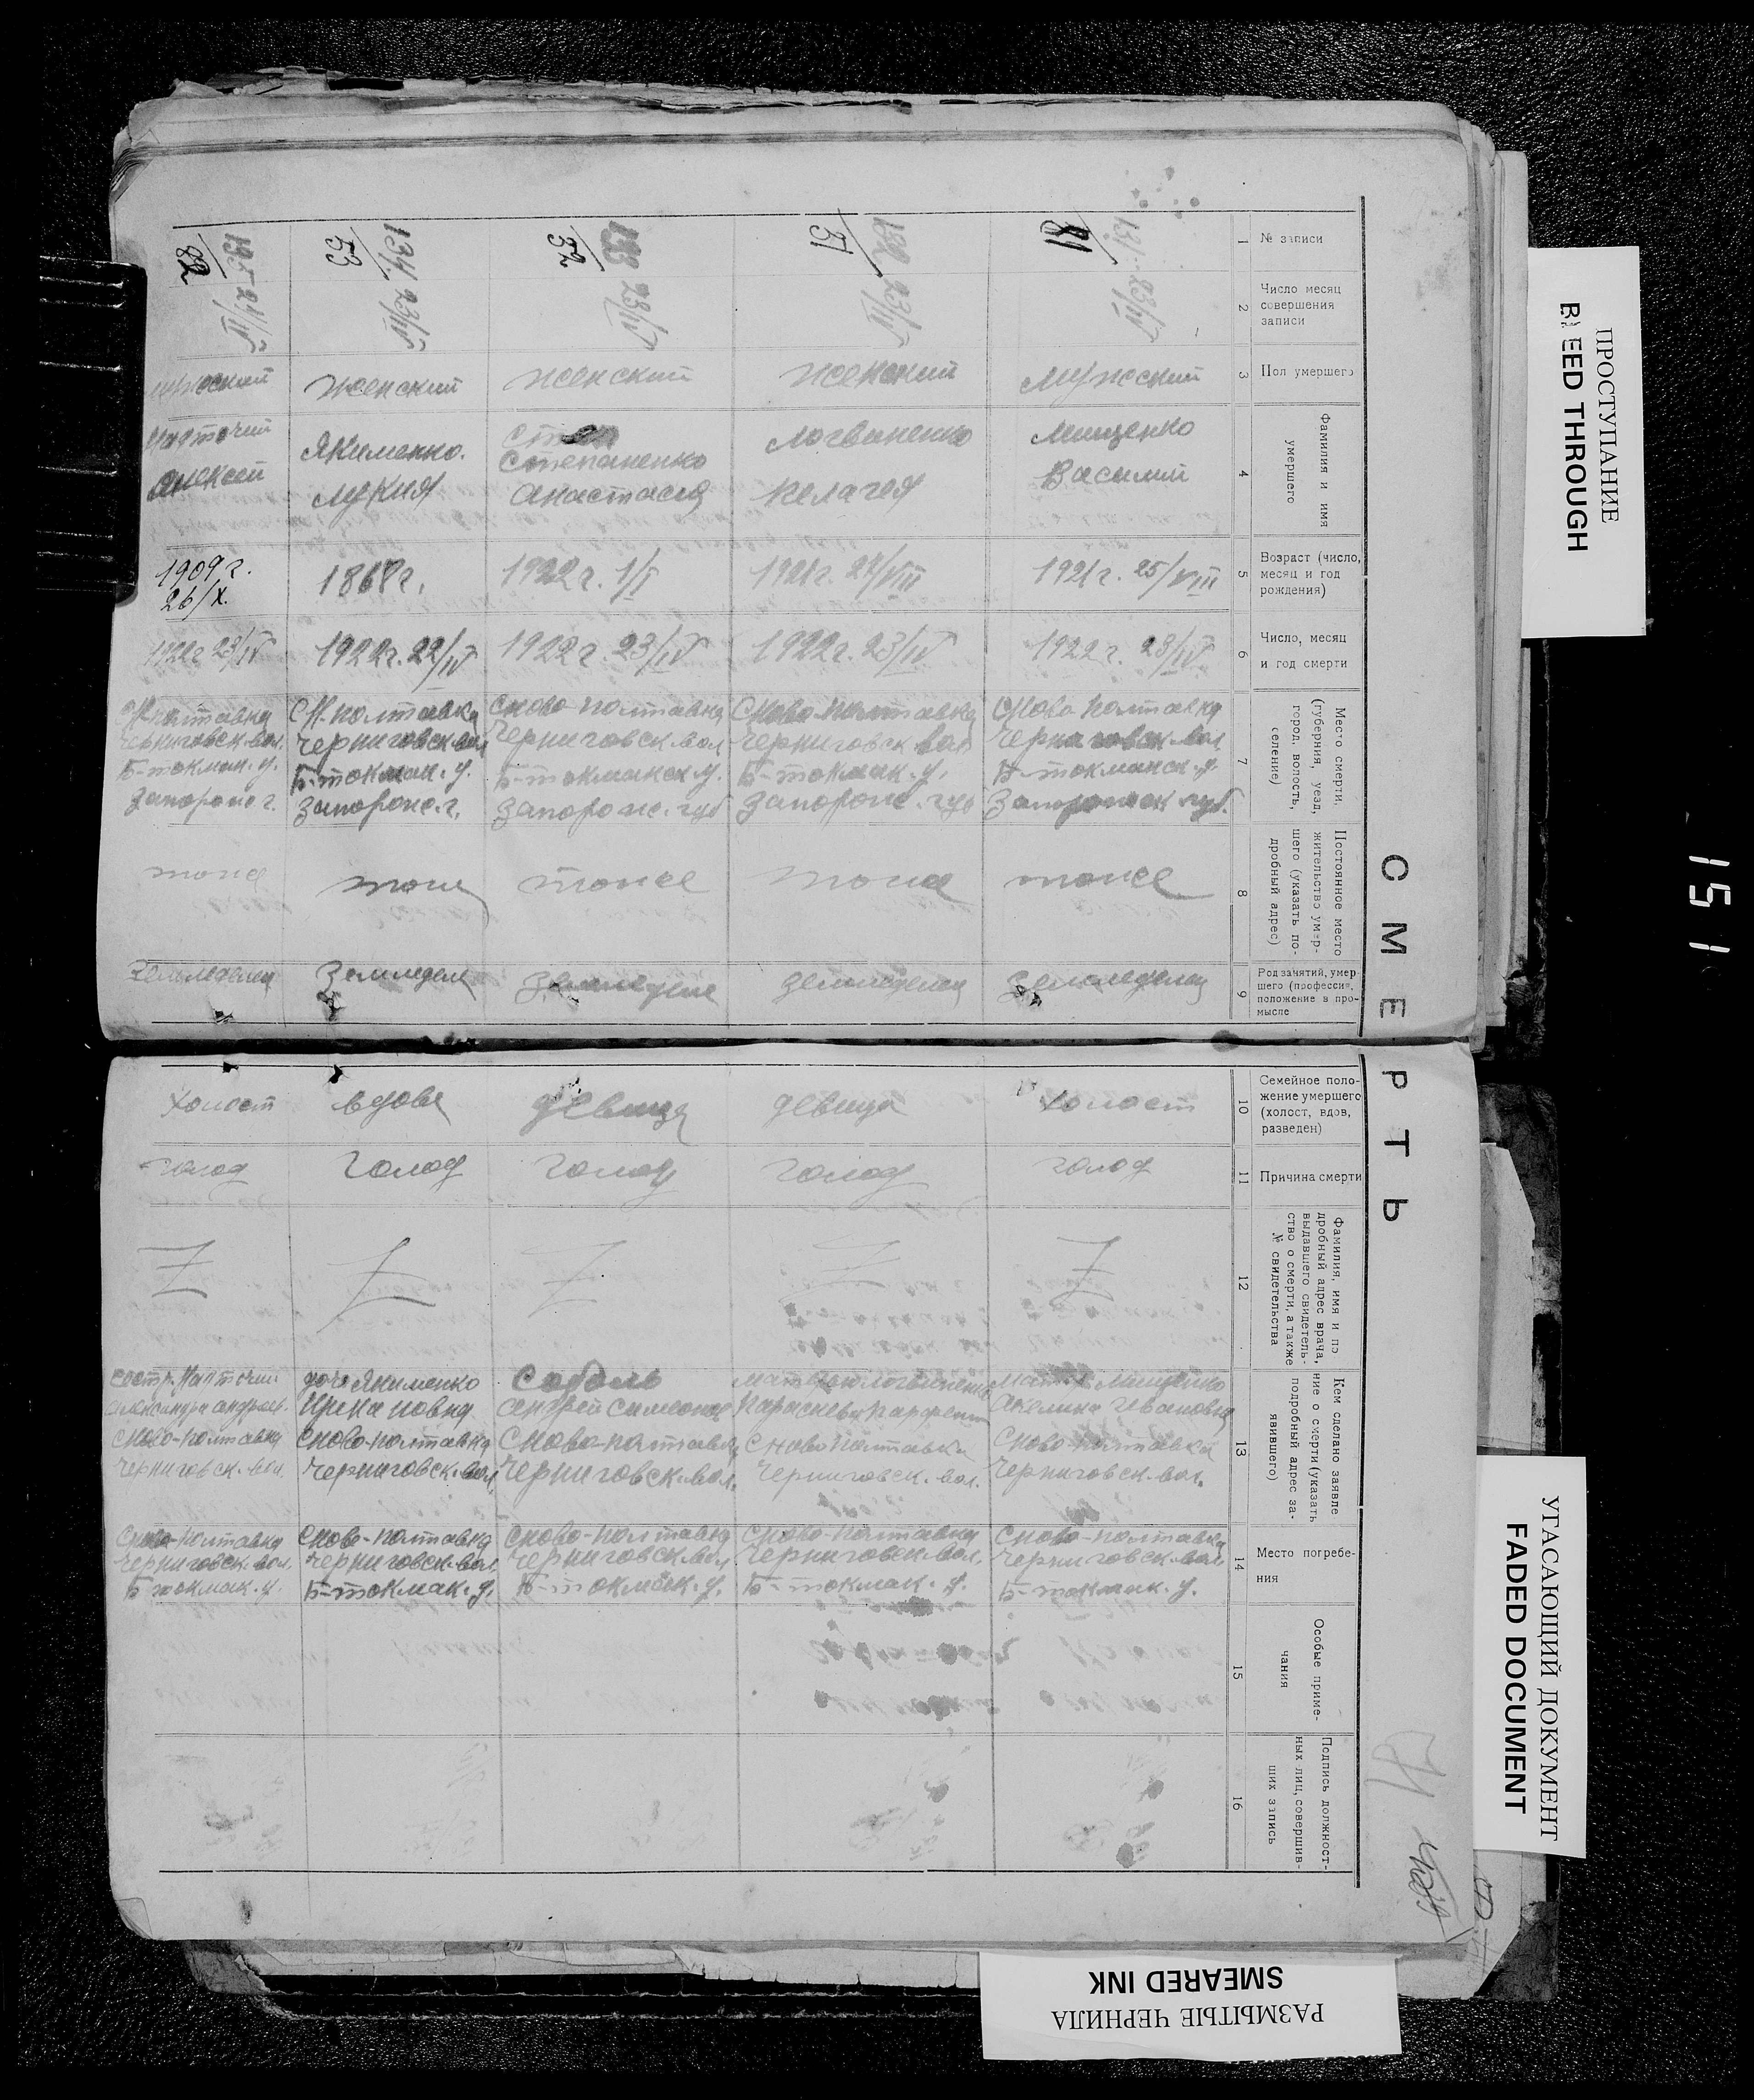 ПРОСТУПАНИЕ
BLEED THROUGH
УГАСАЮЩИЙ ДОКУМЕНТ
FADED DOCUMENT
РАЗМЫТЫЕ ЧЕРНИЛА
SMEARED INK
151
СМЕРТЬ
1
№ записи
131
81
132
51
133
52
134
53
135
82
2
Число месяц
совершения
записи
23/IV
23/IV
23/IV
23/IV
24/IV
3
Пол умершего
Мужской
Женский
Женский
Женский
Мужской
4
Фамилия и имя
умершего
Мищенко
Василий
Логвиненко
Пелагея
Степаненко
Анастасия
Якименко.
Лукия
Алексей
5
Возраст (число,
месяц и год
рождения)
1921 г. 25/VIII
1921 г. 27/VIII
1922 г. 1/I
1867 г.
1909 г.
26/X.
6
Число, месяц
и год смерти
1922 г. 23/IV
1922 г. 23/IV
1922 г. 23/IV
1922 г. 22/IV
1922 г 23/IV
7
Место смерти,
(губерния, уезд,
город, волость,
селение)
С Ново Полтавка
Черниговск вол
Б-токманск. у.
Запорожск губ.
С Ново-Полтавка
Черниговск вол
Б-токмак. у.
Запорож. губ
С Ново-Полтавка
Черниговск. вол
Б-токманск у.
Запорож. губ
С Н-Полтавка
Черниговск вол
Б-токмак. у.
Запорож. г.
С Н-Полтавка
Черниговск. вол.
Б-токмак. у.
Запорож г.
8
Постоянное место
жительство умер-
шего (указать по-
дробный адрес)
тоже
тоже
тоже
тоже
тоже
9
Род занятий, умер-
шего (профессия,
положение в про-
мысле
Земледелец
Земледелец
Земледелец
Земледелец
Земледелец
10
Семейное поло-
жение умершего
(холост, вдов,
разведен)
Холост
девица
девица
вдова
Холост
11
Причина смерти
голод
голод
голод
голод
голод
12
Фамилия, имя и по
дробный адрес врача,
выдавшего свидетель-
ство о смерти, а также
№ свидетельства
13
Кем сделано заявле
ние о смерти (указать
подробный адрес за-
явившего)
Мать Мищенко
Акелина Ивановна
С Ново-Полтавка
Черниговск. вол.
Мать Логвиненко
Параскева
С Ново Полтавка
Черниговск. вол.
Соболь
Андрей Симеонов
С Ново-Полтавка
Черниговск. вол.
дочь Якименко
Ирина
С Ново-Полтавка
Черниговск. вол.
Андреев.
С Ново-Полтавка
Черниговск. вол.
14
Место погребе-
ния
С Ново-Полтавка
Черниговск вол.
Б-токмак. у.
С Ново-Полтавка
Черниговск вол.
Б-токмак. у.
С Ново-Полтавка
Черниговск. вол
Б-токмак. у.
С Ново-Полтавка
Черниговск вол
Б-токмак. у.
С Ново-Полтавка
Черниговск. вол.
Б-токмак. у.
15
Особые приме-
чания
16
Подпись должност-
ных лиц, совершив-
ших запись